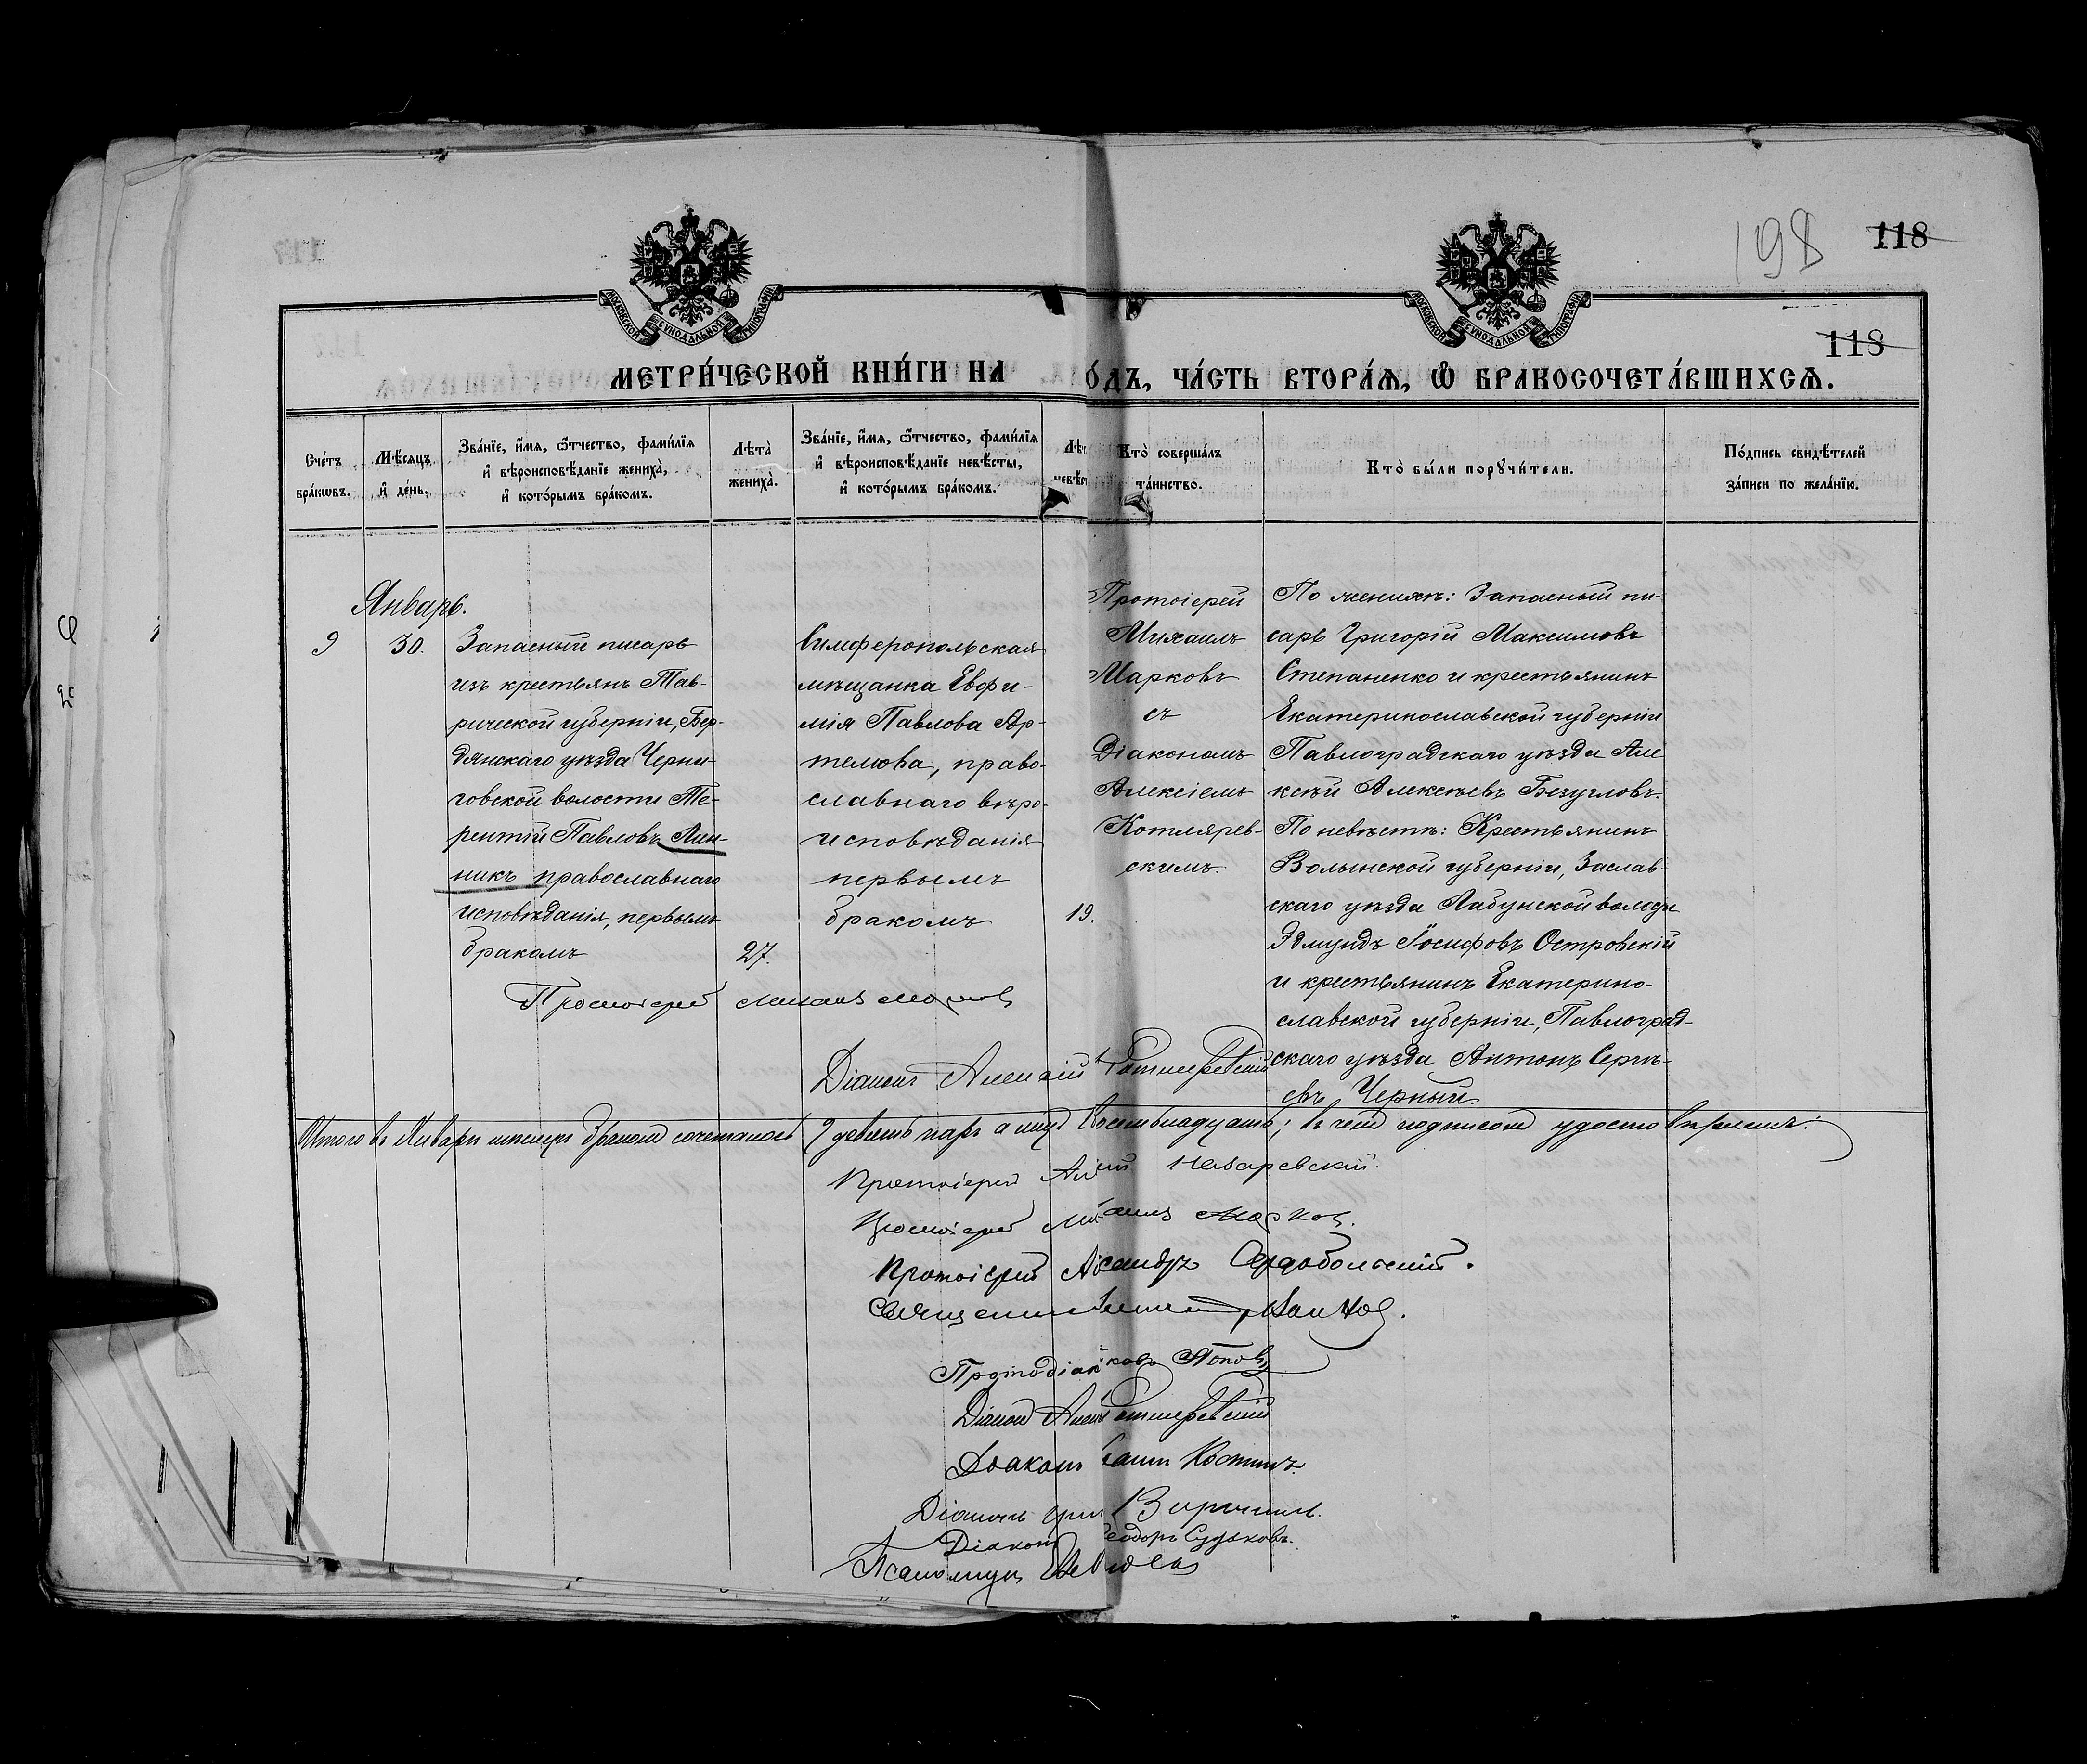 198
118
118
МОСКОВСКОЙ СУНОДАЛЬНОЙ ТИПОГРАФІИ
МОСКОВСКОЙ СУНОДАЛЬНОЙ ТИПОГРАФІИ
МЕТРИ́ЧЕСКОЙ КНИ́ГИ НА
О́ДЪ, ЧА́СТЬ ВТОРА́Ѧ, Ѽ БРАКОСОЧЕТА́ВШИХСѦ.
Сче́тъ бра́кѡвъ.
Мѣ́сѧцъ и҆ де́нь.
Зва́нїе, и҆́мѧ, ѻ҆́тчество, фами́лїѧ
и҆ вѣроисповѣ́данїе жениха̀,
и҆ кото́рымъ бра́комъ.
Лѣта̀ жениха̀.
Зва́нїе, и҆́мѧ, ѻ҆́тчество, фами́лїѧ
и҆ вѣроисповѣ́данїе невѣ́сты,
и҆ кото́рымъ бра́комъ.
Лѣт
невѣст
Кто̀ соверша́лъ
та́инство.
Кто̀ бы́ли порꙋчи́тели.
По́дпись свидѣ́телей
за́писи по жела́нїю.
Январь.
9
30.
Запасный писарь
изъ крестьянъ Тав-
рической губерніи, Бер-
дянскаго уѣзда Черни-
говской волости Те-
рентій Павловъ Лин-
никъ православнаго
исповѣданія, первымъ
бракомъ
27.
Симферопольская
мѣщанка Евфи-
мія Павлова Ар-
темова, право-
славнаго вѣро-
исповѣданія
первымъ
бракомъ
19.
Протоіерей
Михаилъ
Марковъ
съ
Діакономъ
Алексіемъ
Котлярев-
скимъ.
По женихѣ: Запасный пи-
сарь Григорій Максимовъ
Степаненко и крестьянинъ
Екатеринославской губерніи
Павлоградскаго уѣзда Але
ксѣй Алексѣевъ Безугловъ.
По невѣстѣ: Крестьянинъ
Волынской губерніи, Заслав-
скаго уѣзда Лабунской волости
Эдмундъ Іосифовъ Островскій
и крестьянинъ Екатерино-
славской губерніи, Павлоград-
скаго уѣзда Антонъ Сергѣ-
евъ Черный.
Протоіерей Михаилъ Марковъ
Діаконъ Алексій Котляревскій
Итого въ Январѣ мѣсяцѣ бракомъ сочеталось 9 девять паръ а лицъ восемнадцать; въ чемъ подписомъ удостовѣряемъ.
Протоіерей Назаревскій.
Протоіерей Марковъ.
Протоіерей Сердобольскій.
Священникъ
Протодіаконъ Поповъ
Діаконъ Алексій Котляревскій
Діаконъ Костинъ.
Діаконъ
Діаконъ Ѳеодоръ Судаковъ.
Псаломщикъ